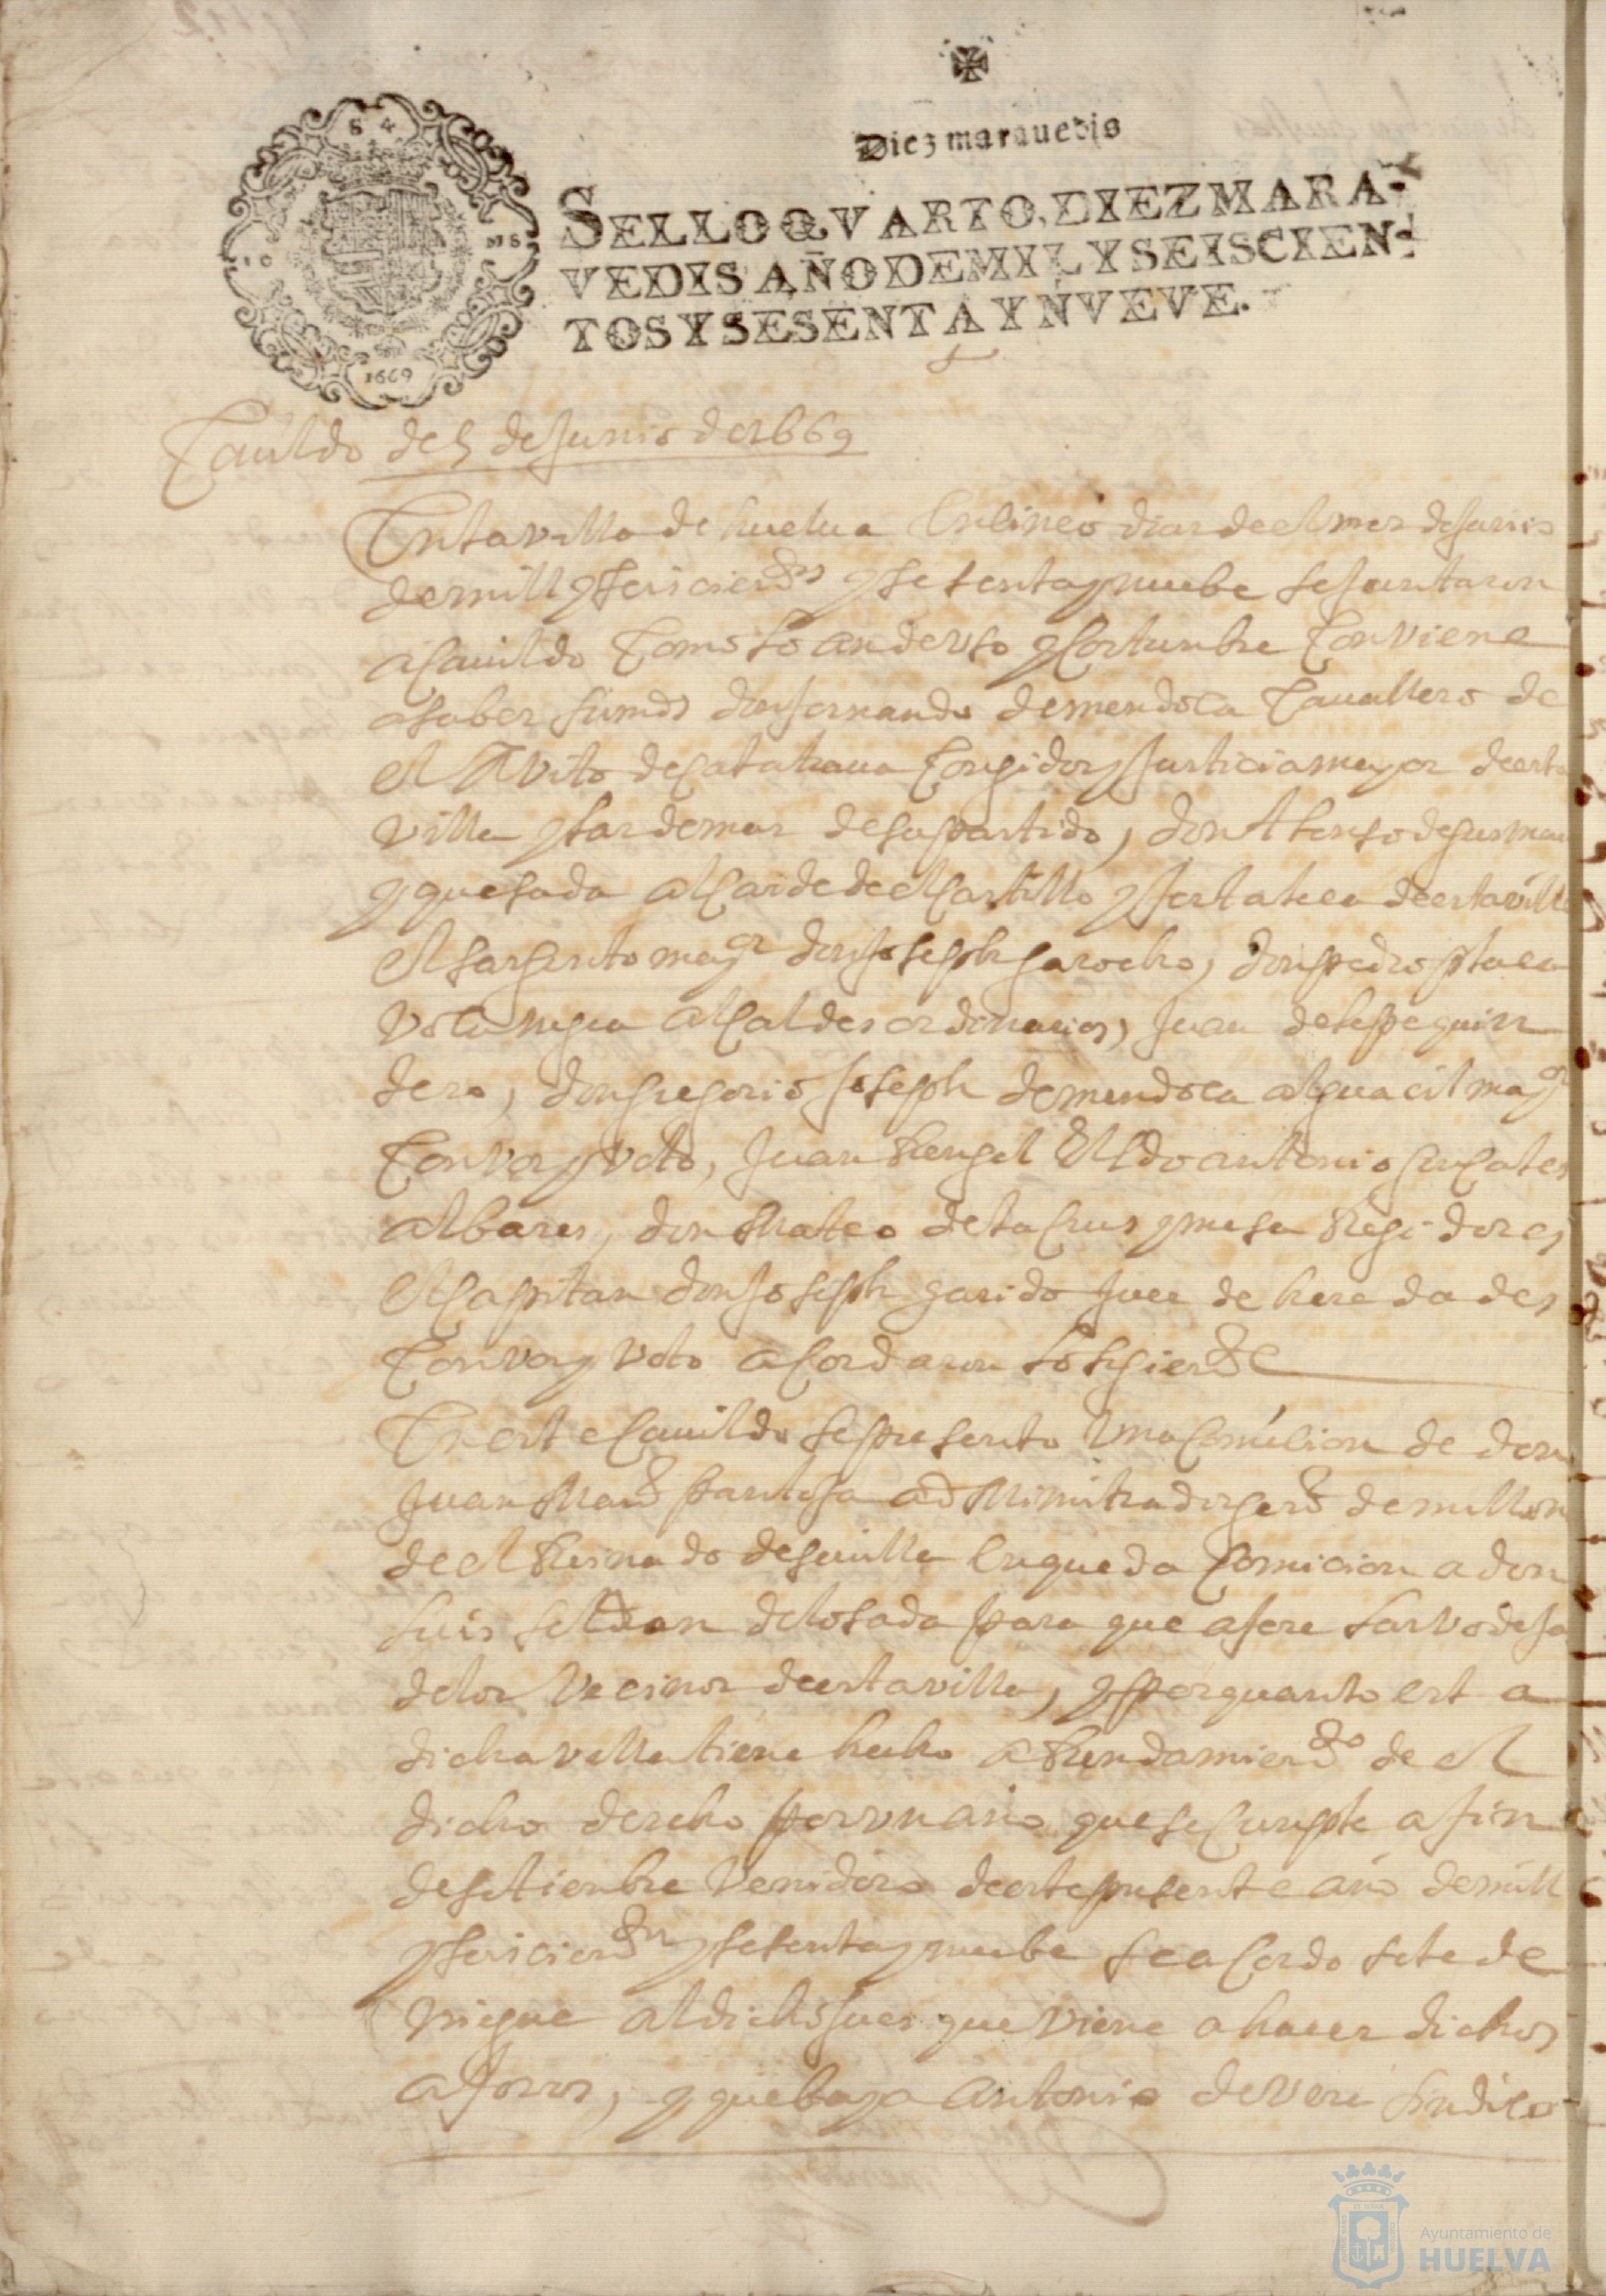 Diez marauedis
SELLO QVARTO, DIEZ MARA-
VEDIS, AÑO DE MIL Y SEISCIEN-
TOS Y SESENTA Y NVEVE.
S 4
1669
Cauildo de 5 de Junio de 1669
En la villa de huelua En cinco dias de el mes de Junio
de mill y seiscientos y sesenta y nuebe se Juntaron
a Cauildo Como lo an de vso y Costumbre Conviene
a saber su md don fernando de mendoça Cauallero de
el Avito de Calatraua Corregidor y Justicia mayor de esta
villa y de mar de su partido, don Alonso de gusman
y quesada alcaide de el Castillo y fortaleça de esta villa
el sargento mayor don Joseph garocho, don pedro plaça
alcaldes ordinarios, Juan de
dero, don gregorio Joseph de mendoça alguacil mayor
Con vos y voto, Juan Rengel el Ldo antonio
albares, don Mateo de la Crus y mesa Regidores
el Capitan don Joseph garrido Jues de heredades
Con vos y voto acordaron lo siguiente
En este Cauildo se presento Vna Comicion de don
Juan pantoja adMinistrador general de millones
de el Reinado de seuilla En que da Comicion a don
Luis de losada para que afore
de los Vecinos de esta villa, y por quanto esta
dicha villa tiene hecho aRendamiento de el
dicho derecho por vn año que se Cumple a fin
de setiembre Venidero de este presente año de mill
y seiscientos y sesenta y nuebe se acordo se le de
notifique al dicho Jues que viene a hacer dichos
aforos, y que baya antonio de vera sindico
Ayuntamiento de
HUELVA